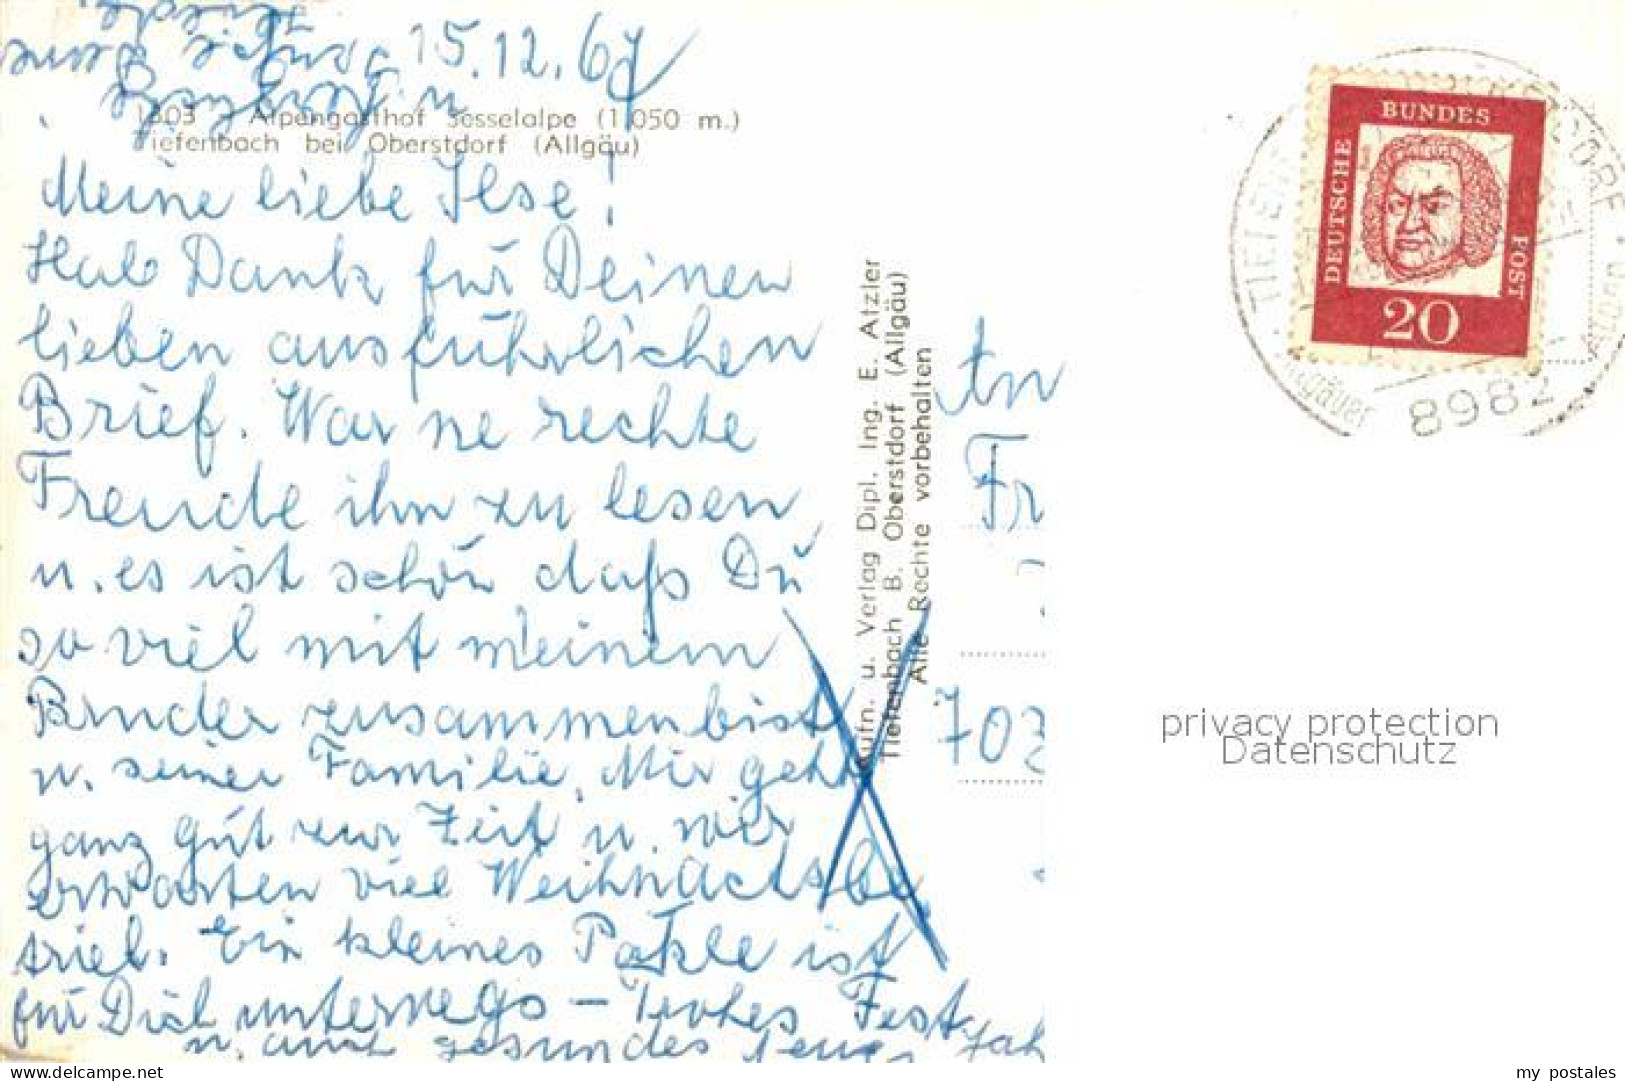 15.12.67
1603 - Alpengasthof Sesselalpe (1 050 m.)
Tiefenbach bei Oberstdorf (Allgäu)
Meine liebe Ilse!
Hab Dank für Deinen
lieben ausführlichen
Brief. War ne rechte
Freude ihn zu lesen
u. es ist schön daß Du
so viel mit meinem
Bruder zusammenbist
u. seiner Familie. Mir geht
ganz gut zur Zeit u. wir
erwarten viel Weihnachtsbe
trieb. Ein kleines Pakle ist
für Dich unterwegs - Frohes Fest
u. auch gesundes neues Jah
Aufn. u. Verlag Dipl. Ing. E. Atzler
Tiefenbach B. Oberstdorf (Allgäu)
Alle Rechte vorbehalten
An
Fr
703
DEUTSCHE
BUNDES
POST
20
8982
privacy protection
Datenschutz
my postales
www.delcampe.net